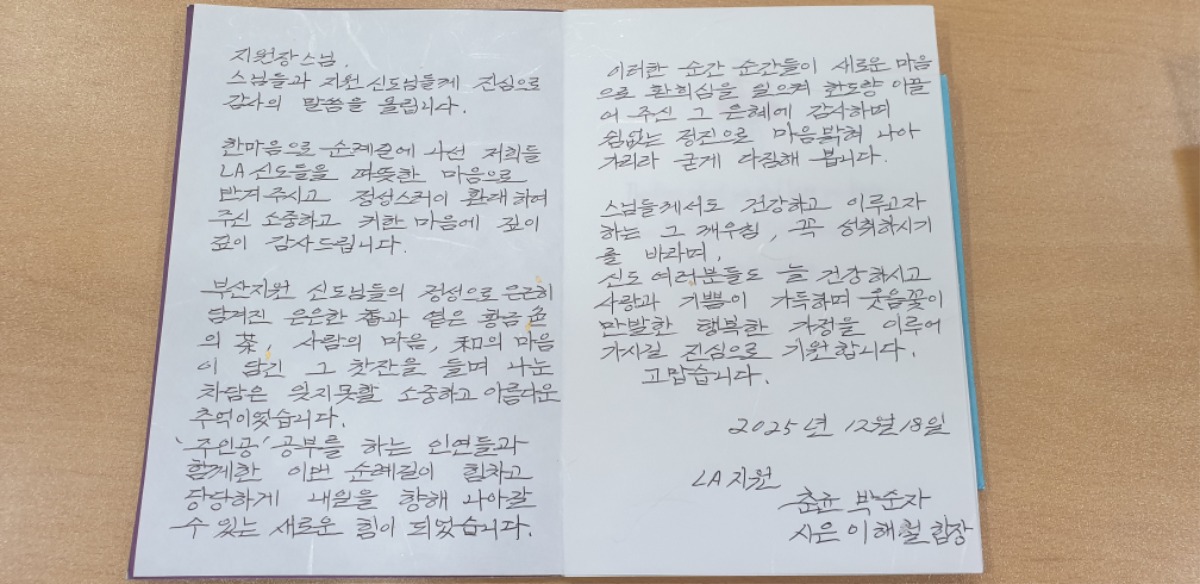 지원장스님,
스님들과 지원 신도님들께 진심으로
감사의 말씀을 올립니다.
한마음으로 순례길에 나선 저희들
LA 신도들을 따뜻한 마음으로
반겨주시고 정성스러이 환대하여
주신 소중하고 귀한 마음에 깊이
깊이 감사드립니다.
부산지원 신도님들의 정성으로 은근히
담겨진 은은한 香과 옅은 황금色
의 茶, 사람의 마음, 和의 마음
이 담긴 그 찻잔을 들며 나눈
차담은 잊지못할 소중하고 아름다운
추억이었습니다.
'주인공' 공부를 하는 인연들과
함께한 이번 순례길이 힘차고
당당하게 내일을 향해 나아갈
수 있는 새로운 힘이 되었습니다.
이러한 순간 순간들이 새로운 마음
으로 환희심을 일으켜 한도량 이끌
어 주신 그 은혜에 감사하며
쉼없는 정진으로 마음밝혀 나아
가리라 굳게 다짐해 봅니다.
스님들께서도 건강하고 이루고자
하는 그 깨우침, 꼭 성취하시기
를 바라며,
신도 여러분들도 늘 건강하시고
사랑과 기쁨이 가득하며 웃음꽃이
만발한 행복한 가정을 이루어
가시길 진심으로 기원합니다.
고맙습니다.
2025년 12월 18일
LA지원
박순자
이해철 합장